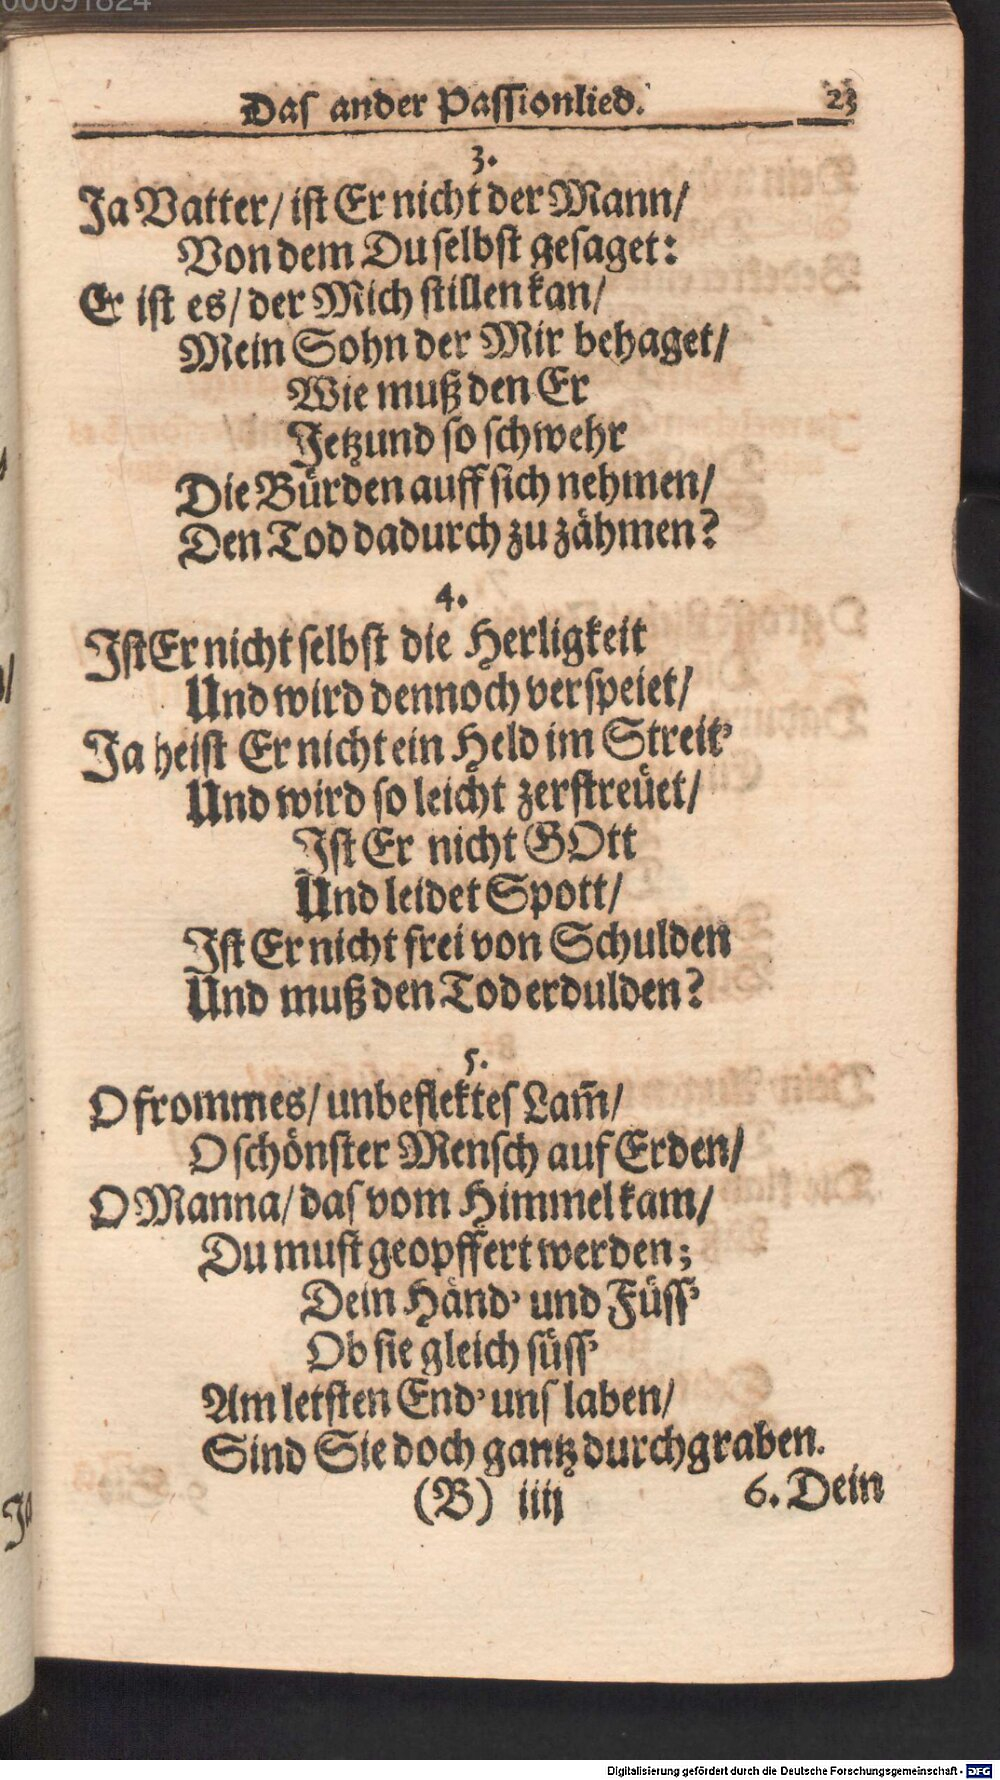 00091824
Das ander Passionlied. 23
3.
Ja Vatter/ ist Er nicht der Mann/
Von dem Du selbst gesaget:
Er ist es/ der Mich stillen kan/
Mein Sohn der Mir behaget/
Wie muß den Er
Jetzund so schwehr
Die Bürden auff sich nehmen/
Den Tod dadurch zu zähmen?
4.
Ist Er nicht selbst die Herligkeit
Und wird dennoch verspeiet/
Ja heist Er nicht ein Held im Streit'
Und wird so leicht zerstreüet/
Ist Er nicht GOtt
Und leidet Spott/
Ist Er nicht frei von Schulden
Und muß den Tod erdulden?
5.
O frommes/ unbeflektes Lam̃/
O schönster Mensch auf Erden/
O Manna/ das vom Himmel kam/
Du must geopffert werden;
Dein Händ' und Füss'
Ob sie gleich süss'
Am letsten End' uns laben/
Sind Sie doch gantz durchgraben.
(B) iiij 6. Dein
Digitalisierung gefördert durch die Deutsche Forschungsgemeinschaft - DFG